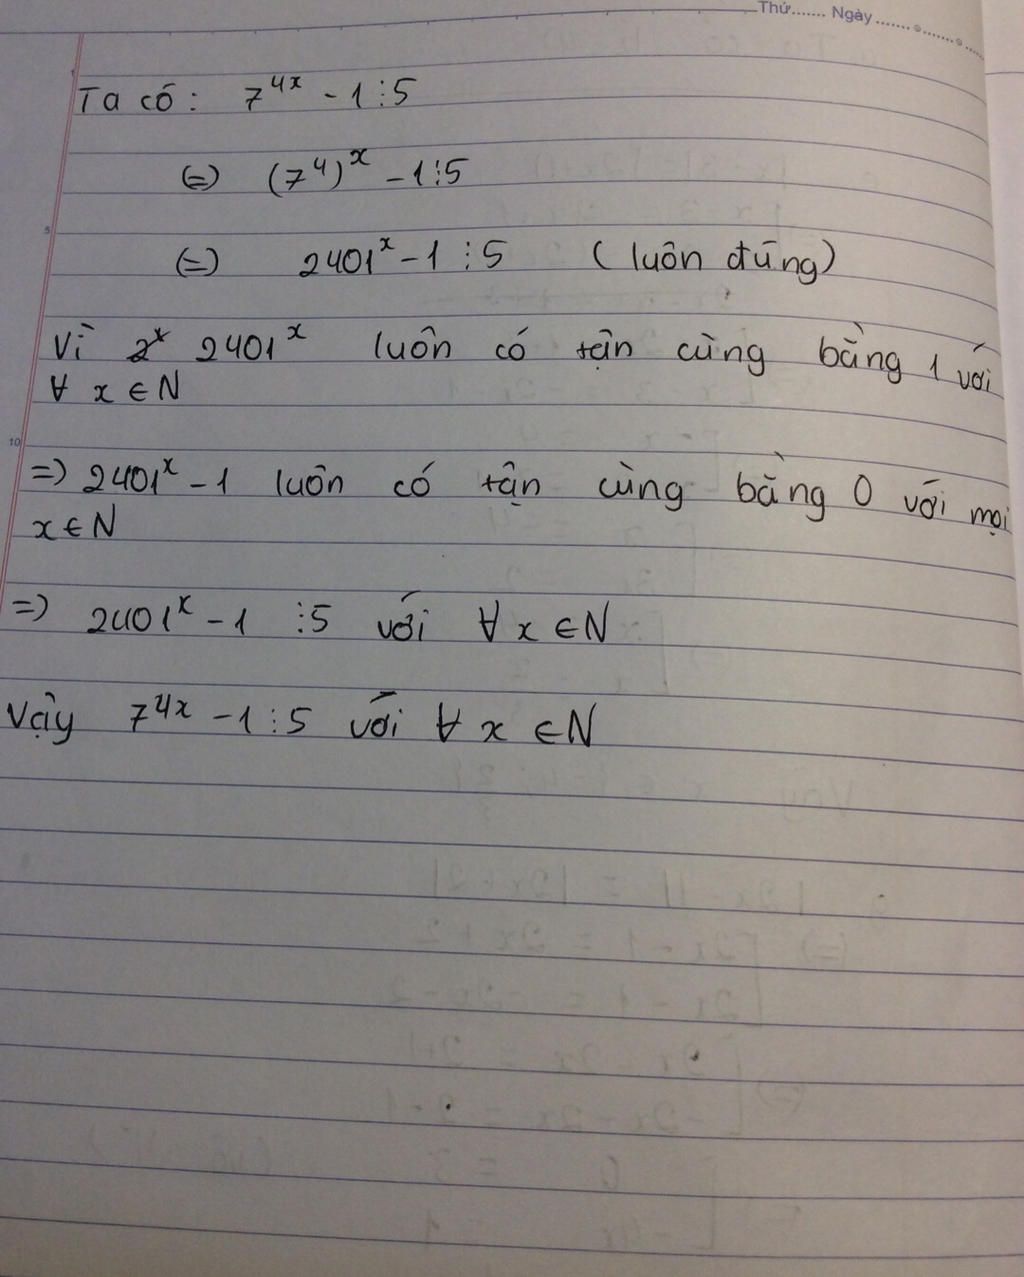 Thứ....... Ngày
5
10
Ta có: 7^{4x} - 1 ⋮ 5
(=) (7^4)^x - 1 ⋮ 5
(=) 2401^x - 1 ⋮ 5 (luôn đúng)
Vì 2401^x luôn có tận cùng bằng 1 với
∀ x ∈ N
=) 2401^x - 1 luôn có tận cùng bằng 0 với mọi
x ∈ N
=) 2401^x - 1 ⋮ 5 với ∀ x ∈ N
Vậy 7^{4x} - 1 ⋮ 5 với ∀ x ∈ N